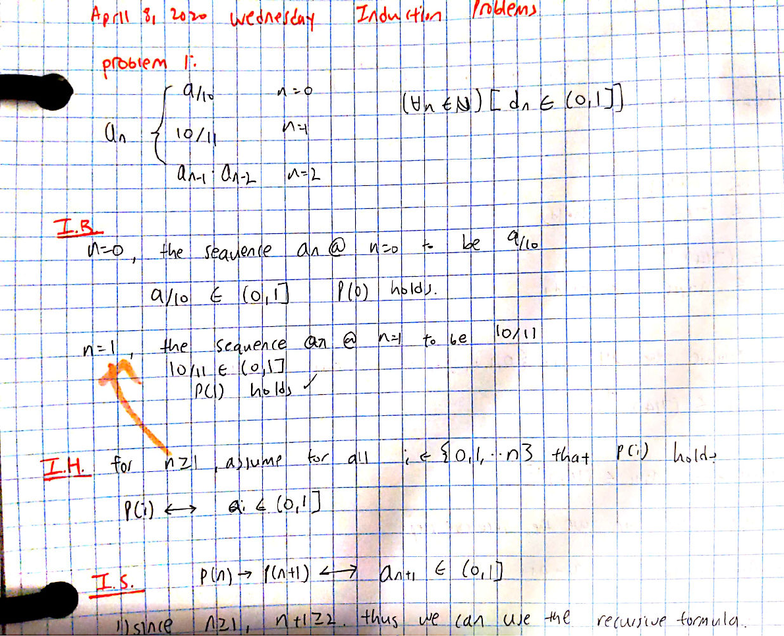 April 8, 2020 Wednesday Induction Problems
problem 1:
an { 9/10 n=0
10/11 n=1
an-1 · an-2 n=2
(∀n ∈ ℕ) [ dn ∈ (0,1] ]
I.B.
n=0, the sequence an @ n=0 to be 9/10
9/10 ∈ (0,1] P(0) holds.
n=1, the sequence an @ n=1 to be 10/11
10/11 ∈ (0,1]
P(1) holds ✓
I.H. for n≥1, assume for all i ∈ {0,1,··n} that P(i) holds
P(i) ↔ ai ∈ (0,1]
I.S. P(n) → P(n+1) ↔ an+1 ∈ (0,1]
1) since n≥1, n+1≥2. thus we can use the recursive formula.